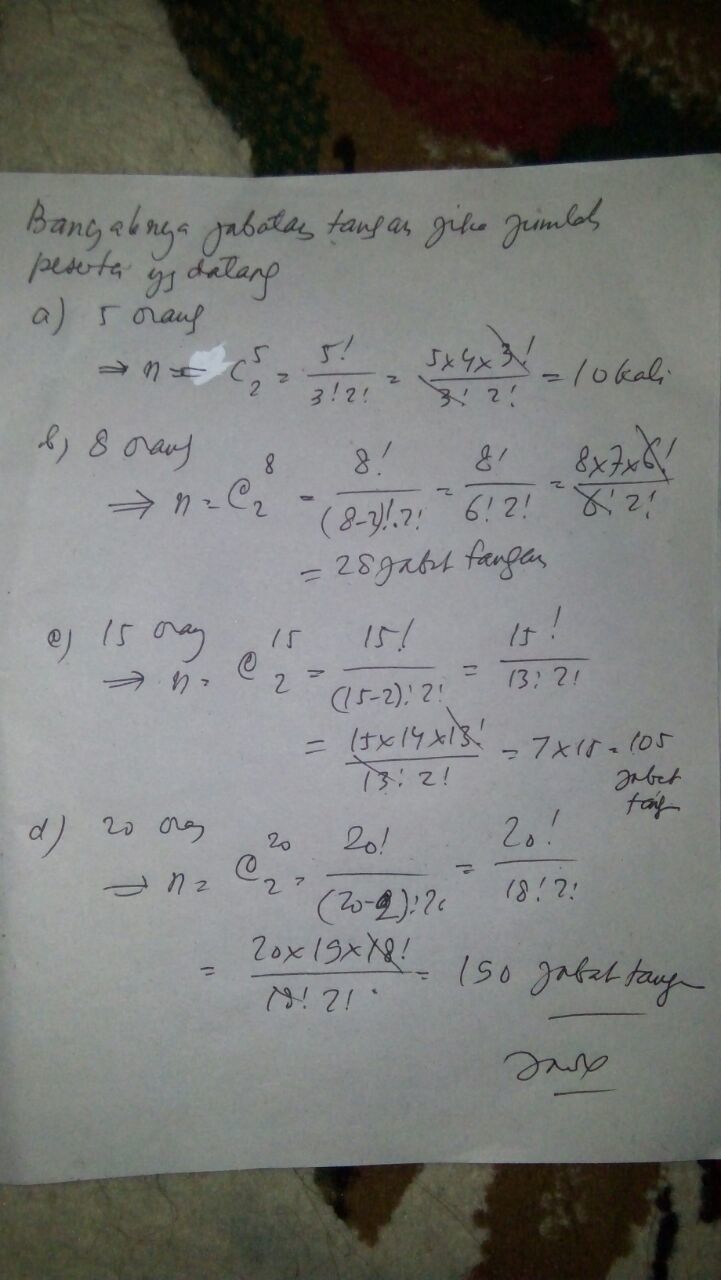 Banyaknya jabatan tangan jika jumlah
peserta yg datang
a) 5 orang
⇒ n = C₂⁵ = 5! / 3! 2! = 5x4x3! / 3! 2! = 10 kali
b) 8 orang
⇒ n = C₂⁸ = 8! / (8-2)!.2! = 8! / 6! 2! = 8x7x6! / 6! 2!
= 28 jabat tangan
c) 15 orang
⇒ n = C₂¹⁵ = 15! / (15-2)! 2! = 15! / 13! 2!
= 15x14x13! / 13! 2! = 7x15 = 105
jabat
tang
d) 20 orang
⇒ n = C₂²⁰ = 20! / (20-2)! 2! = 20! / 18! 2!
= 20x19x18! / 18! 2! = 190 jabat tangan